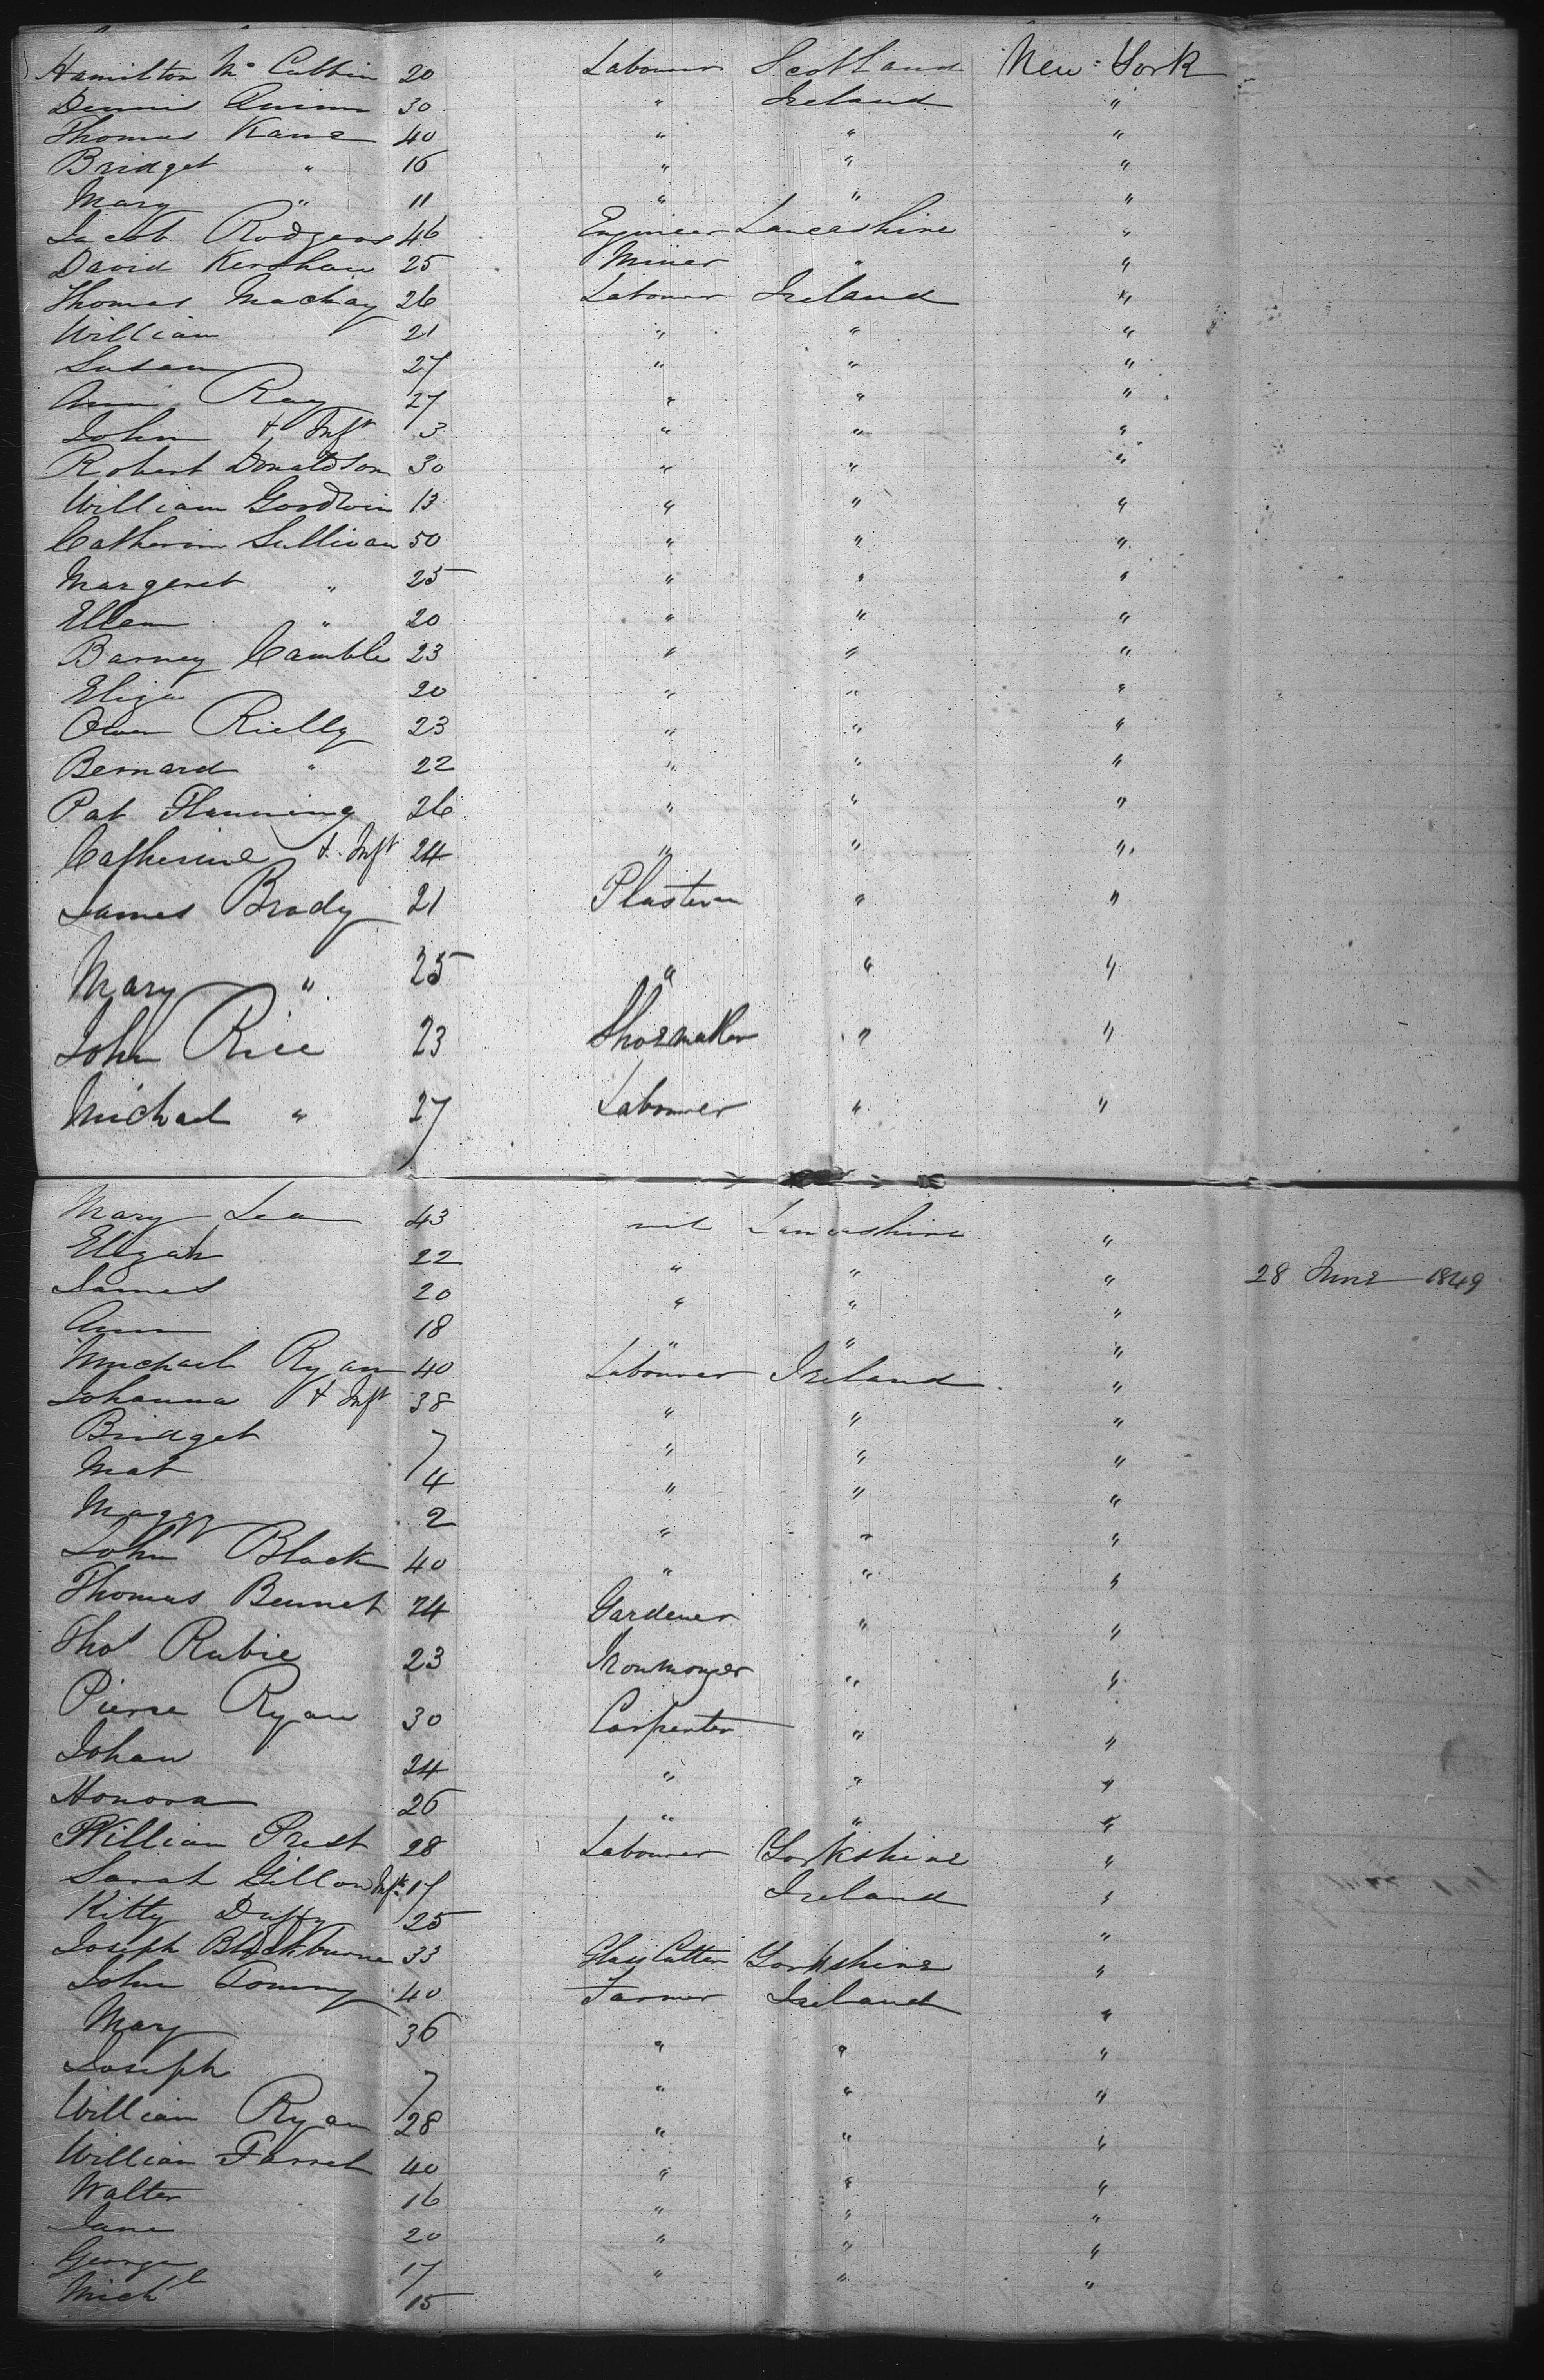 Hamilton Mc Cubbin 20 Labourer Scotland New York
Dennis Quinn 30 " Ireland "
Thomas Kane 40 " " "
Bridget " 16 " " "
Mary " 11 " " "
Jacob Rodgers 46 Engineer Lancashire "
David Kershaw 25 Miner " "
Thomas Mackay 26 Labourer Ireland "
William 21 " " "
Susan 27 " " "
Ann Ray 27 " " "
John & Inft 3 " " "
Robert Donaldson 30 " " "
William Goodwin 13 " " "
Catherine Sullivan 50 " " "
Margeret " 25 " " "
Ellen " 20 " " "
Barney Camble 23 " " "
Eliza 20 " " "
Owen Rielly 23 " " "
Bernard " 22 " " "
Pat Flanning 26 " " "
Catherine & Inft 24 " " "
James Brady 21 Plasterer " "
Mary " 25 " " "
John Rice 23 Shoemaker " "
Michael " 27 Labourer " "
Mary Lea 43 nil Lancashire "
Elizah 22 " " " 28 June 1849
James 20 " " "
Ann 18 " " "
Michael Ryan 40 Labourer Ireland "
Johanna & Inft 38 " " "
Bridget 7 " " "
Mat 4 " " "
Maggy 2 " " "
John Black 40 " " "
Thomas Bennet 24 Gardener " "
Thos Rubie 23 Ironmonger " "
Pierse Ryan 30 Carpenter " "
Johan 24 " " "
Honora 26 " " "
William Prest 28 Labourer Yorkshire "
Sarah Gillon Inft 17 Ireland "
Kitty Duffy 25 "
Joseph Blackburne 33 Glass Cutter Yorkshire "
John Tommy 40 Farmer Ireland "
Mary 36 " " "
Joseph 7 " " "
William Ryan 28 " " "
William Farrel 40 " " "
Walter 16 " " "
Jane 20 " " "
George 17 " " "
Michl 15